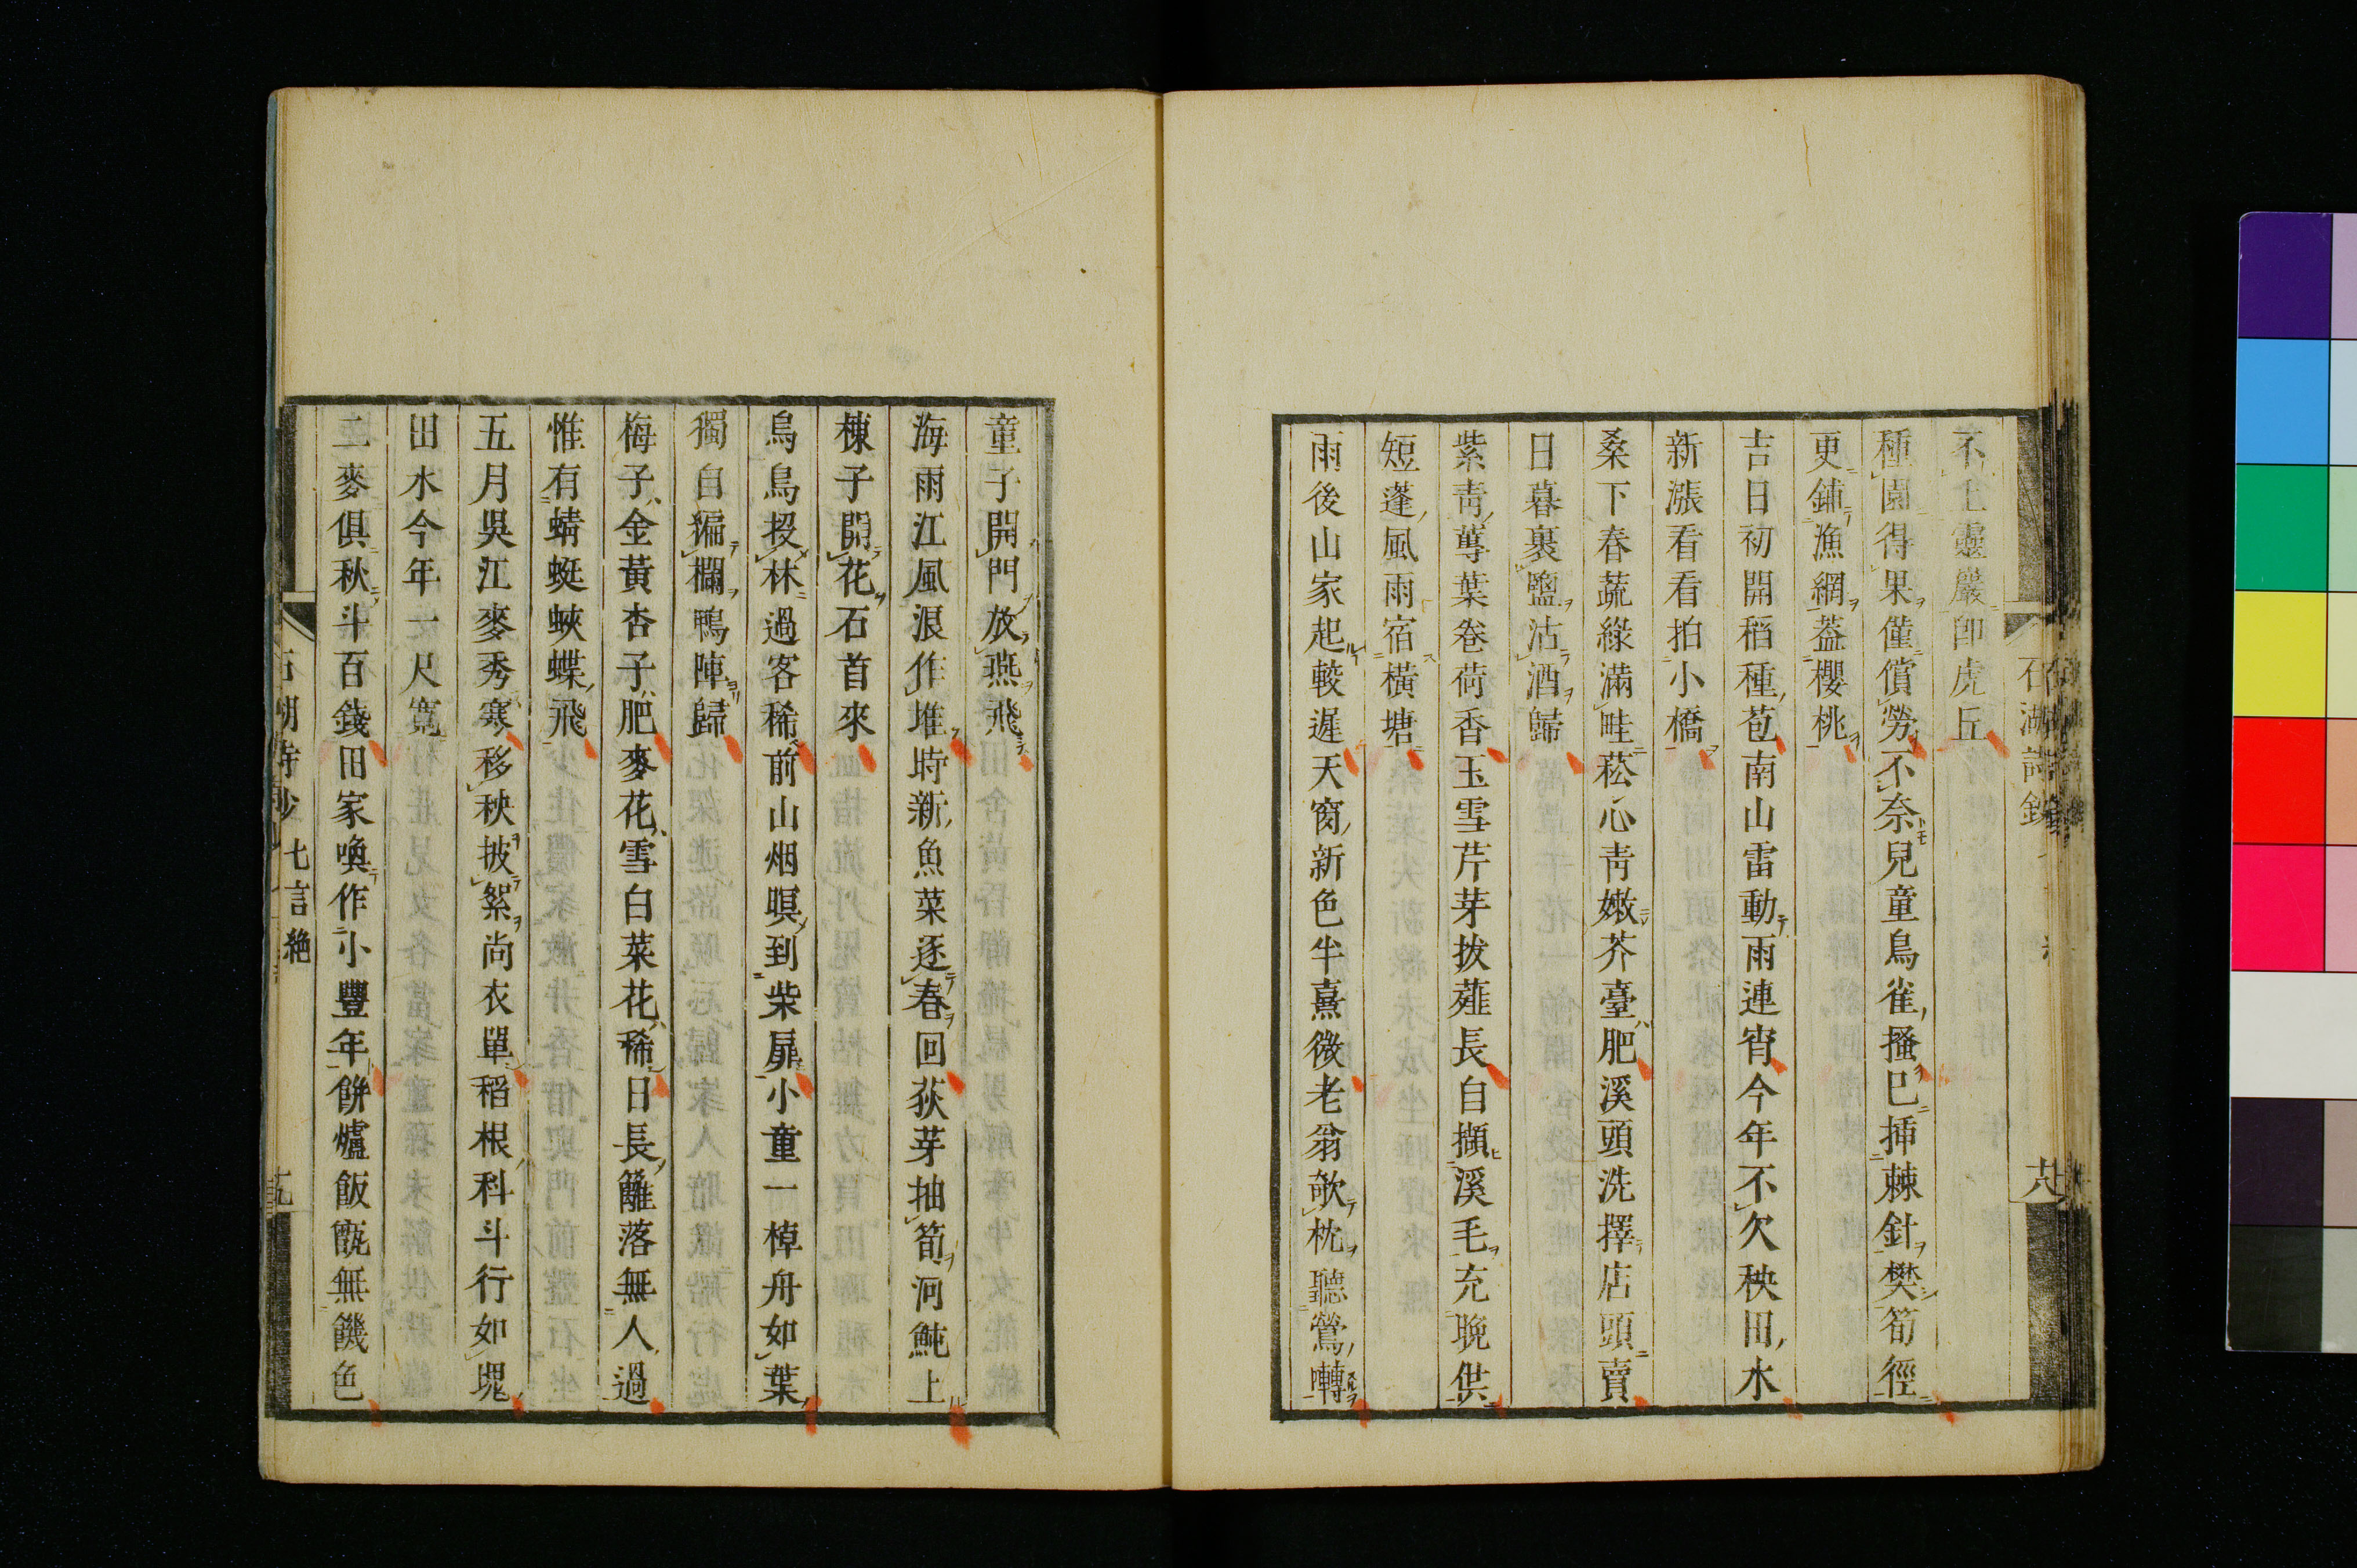 石湖詩鈔
十八
不上靈巖卽虎丘
種園得果僅償勞不奈兒童鳥雀搔已揷棘針樊筍徑
更鋪漁網葢櫻桃
吉日初開稻種苞南山雷動雨連宵今年不欠秧田水
新漲看看拍小橋
桑下春蔬綠滿畦菘心靑嫩芥臺肥溪頭洗擇店頭賣
日暮裹鹽沽酒歸
紫靑蓴葉卷荷香玉雪芹芽拔薤長自擷溪毛充晚供
短蓬風雨宿橫塘
雨後山家起較遲天窗新色半熹微老翁欹枕聽鶯囀
童子開門放燕飛
海雨江風浪作堆時新魚菜逐春回荻芽抽筍河魨上
楝子開花石首來
烏鳥投林過客稀前山烟暝到柴扉小童一棹舟如葉
獨自編欄鴨陣歸
梅子金黃杏子肥麥花雪白菜花稀日長籬落無人過
惟有蜻蜓蛺蝶飛
五月吳江麥秀寒移秧披絮尚衣單稻根科斗行如塊
田水今年一尺寬
二麥俱秋斗百錢田家喚作小豐年餅爐飯甑無饑色
石湖詩鈔 七言絶
十九